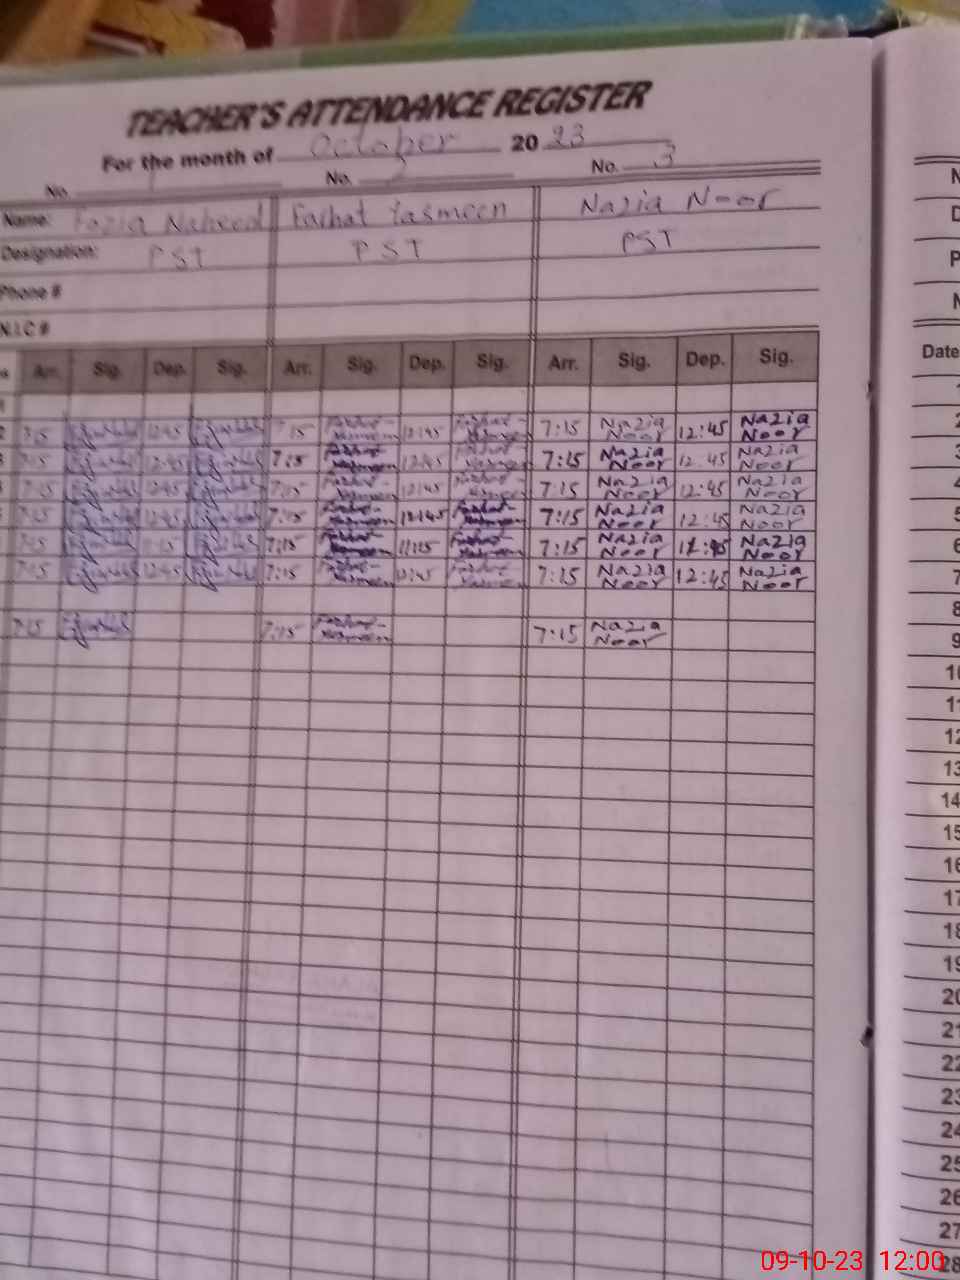 TEACHER'S ATTENDANCE REGISTER
For the month of October 2023
No. 1 No. 2 No. 3
Name: Fozia Naheed Farhat Yasmeen Nazia Noor
Designation: PST PST PST
Phone #
N.I.C #
Arr. Sig. Dep. Sig. Arr. Sig. Dep. Sig. Arr. Sig. Dep. Sig.
7:15 12:45 7:15 Farhat Yasmeen 12:45 Farhat Yasmeen 7:15 Nazia Noor 12:45 Nazia Noor
7:15 12:45 7:15 Farhat Yasmeen 12:45 Farhat Yasmeen 7:15 Nazia Noor 12:45 Nazia Noor
7:15 12:45 7:15 Farhat Yasmeen 12:45 Farhat Yasmeen 7:15 Nazia Noor 12:45 Nazia Noor
7:15 12:45 7:15 Farhat Yasmeen 12:45 Farhat Yasmeen 7:15 Nazia Noor 12:45 Nazia Noor
7:15 11:15 7:15 Farhat Yasmeen 11:15 Farhat Yasmeen 7:15 Nazia Noor Nazia Noor
7:15 12:45 7:15 Farhat Yasmeen 12:45 Farhat Yasmeen 7:15 Nazia Noor 12:45 Nazia Noor
7:15 7:15 Farhat Yasmeen 7:15 Nazia Noor
Date
1
2
3
4
5
6
7
8
9
10
11
12
13
14
15
16
17
18
19
20
21
22
23
24
25
26
27
28
09-10-23 12:00